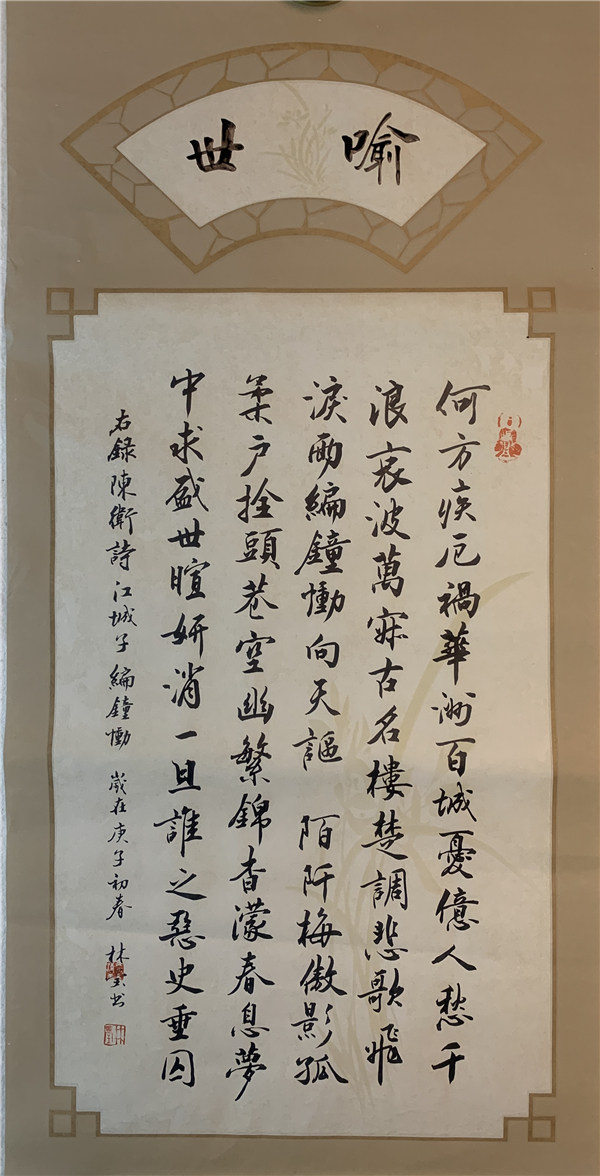 喻世
何方疾厄禍華洲百城憂億人愁千
浪哀波萬寂古名樓楚調悲歌飛
淚雨編鐘慟向天謳 陌阡梅傲影孤
柔戶拴頭巷空幽繁錦杳濛春息夢
中求盛世暄妍消一旦誰之惡史垂囚
右錄陳衛詩江城子編鐘慟 歲在庚子初春 林书